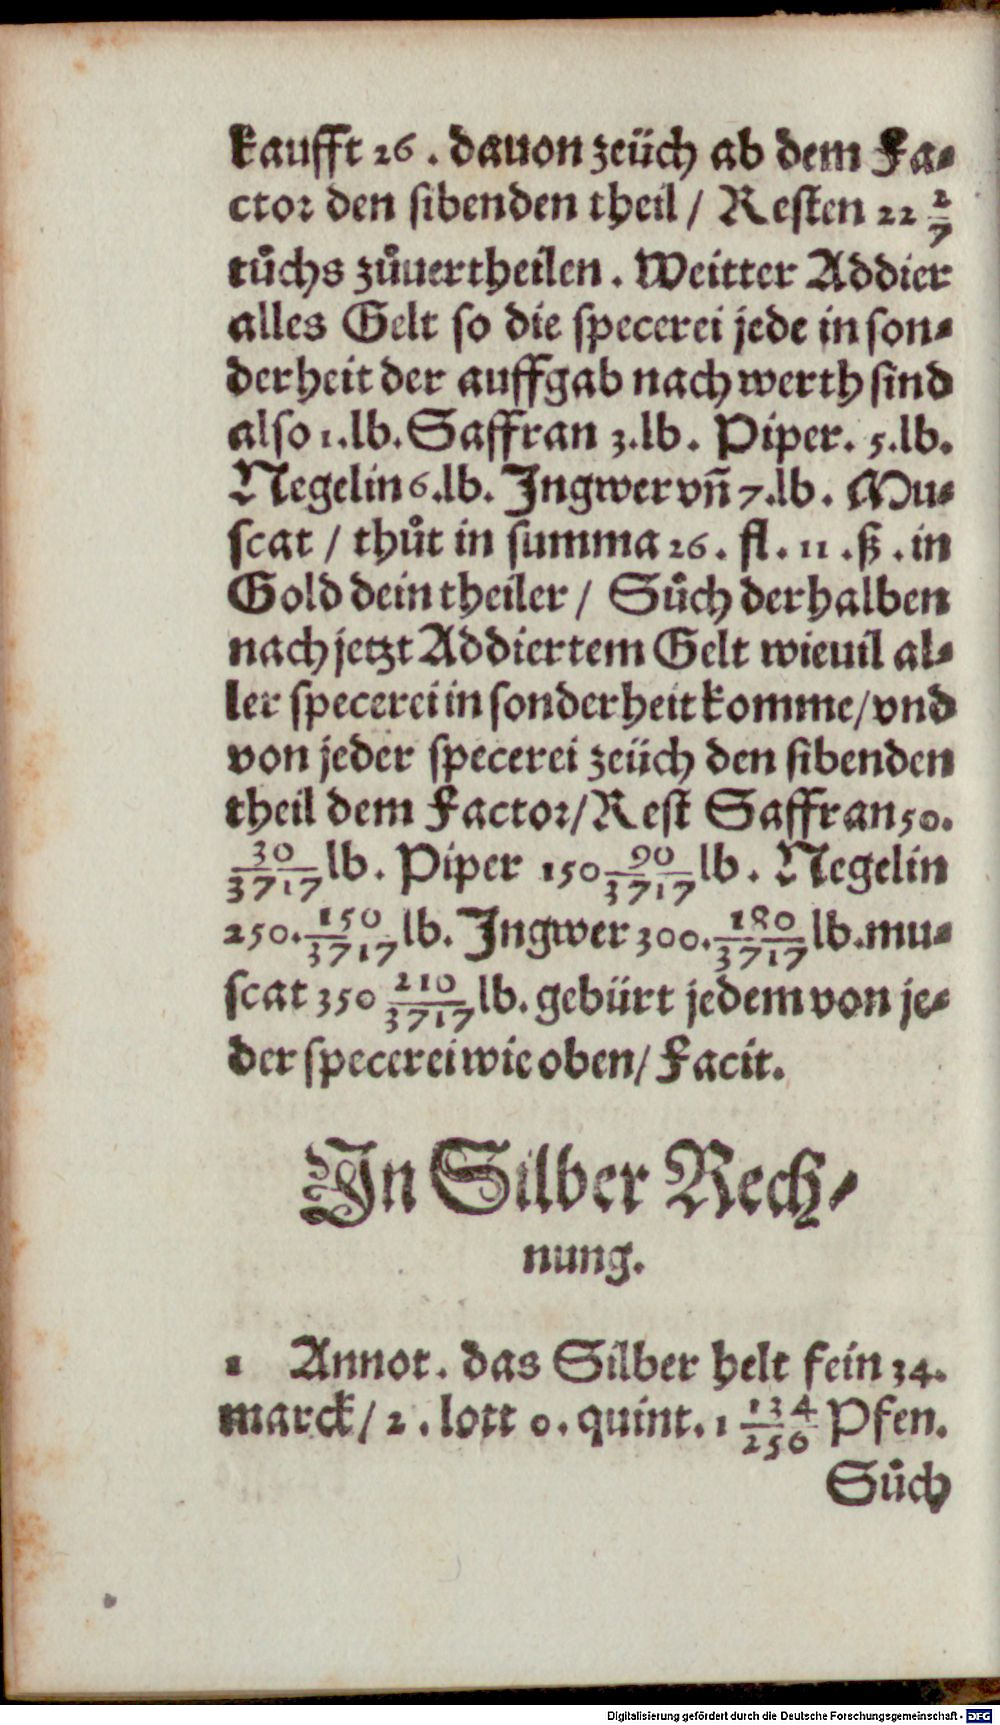 kaufft 26. dauon zeüch ab dem Fa⸗
ctor den sibenden theil / Resten 22 2/7
tůchs zůuertheilen. Weitter Addier
alles Gelt so die specerei jede in son⸗
derheit der auffgab nach werth sind
also 1. lb. Saffran 3. lb. Piper. 5. lb.
Negelin 6. lb. Ingwer vñ 7. lb. Mu⸗
scat / thůt in summa 26. fl. 11. ß. in
Gold dein theiler / Sůch derhalben
nach jetzt Addiertem Gelt wieuil al⸗
ler specerei in sonderheit komme / vnd
von jeder specerei zeüch den sibenden
theil dem Factor / Rest Saffran 50.
30/3717 lb. Piper 150 90/3717 lb. Negelin
250. 150/3717 lb. Ingwer 300. 180/3717 lb. mu⸗
scat 350 210/3717 lb. gebürt jedem von je⸗
der specerei wie oben / Facit.
In Silber Rech⸗
nung.
1 Annot. das Silber helt fein 34.
marck / 2. lott 0. quint. 1 134/256 Pfen.
Sůch
Digitalisierung gefördert durch die Deutsche Forschungsgemeinschaft - DFG